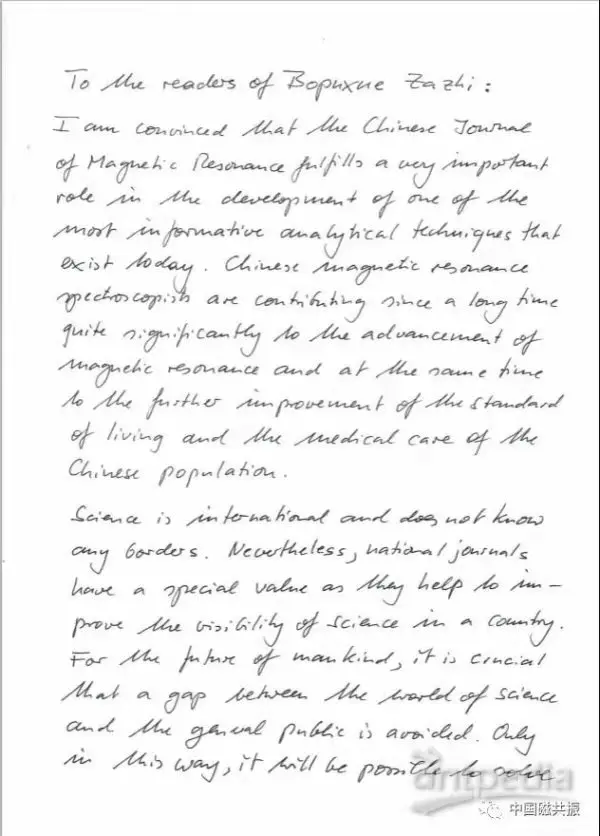 To the readers of Bopuxue Zazhi:
I am convinced that the Chinese Journal
of Magnetic Resonance fulfills a very important
role in the development of one of the
most informative analytical techniques that
exist today. Chinese magnetic resonance
spectroscopists are contributing since a long time
quite significantly to the advancement of
magnetic resonance and at the same time
to the further improvement of the standard
of living and the medical care of the
Chinese population.
Science is international and does not know
any borders. Nevertheless, national journals
have a special value as they help to im-
prove the visibility of science in a country.
For the future of mankind, it is crucial
that a gap between the world of science
and the general public is avoided. Only
in this way, it will be possible to solve
antpedia
中国磁共振